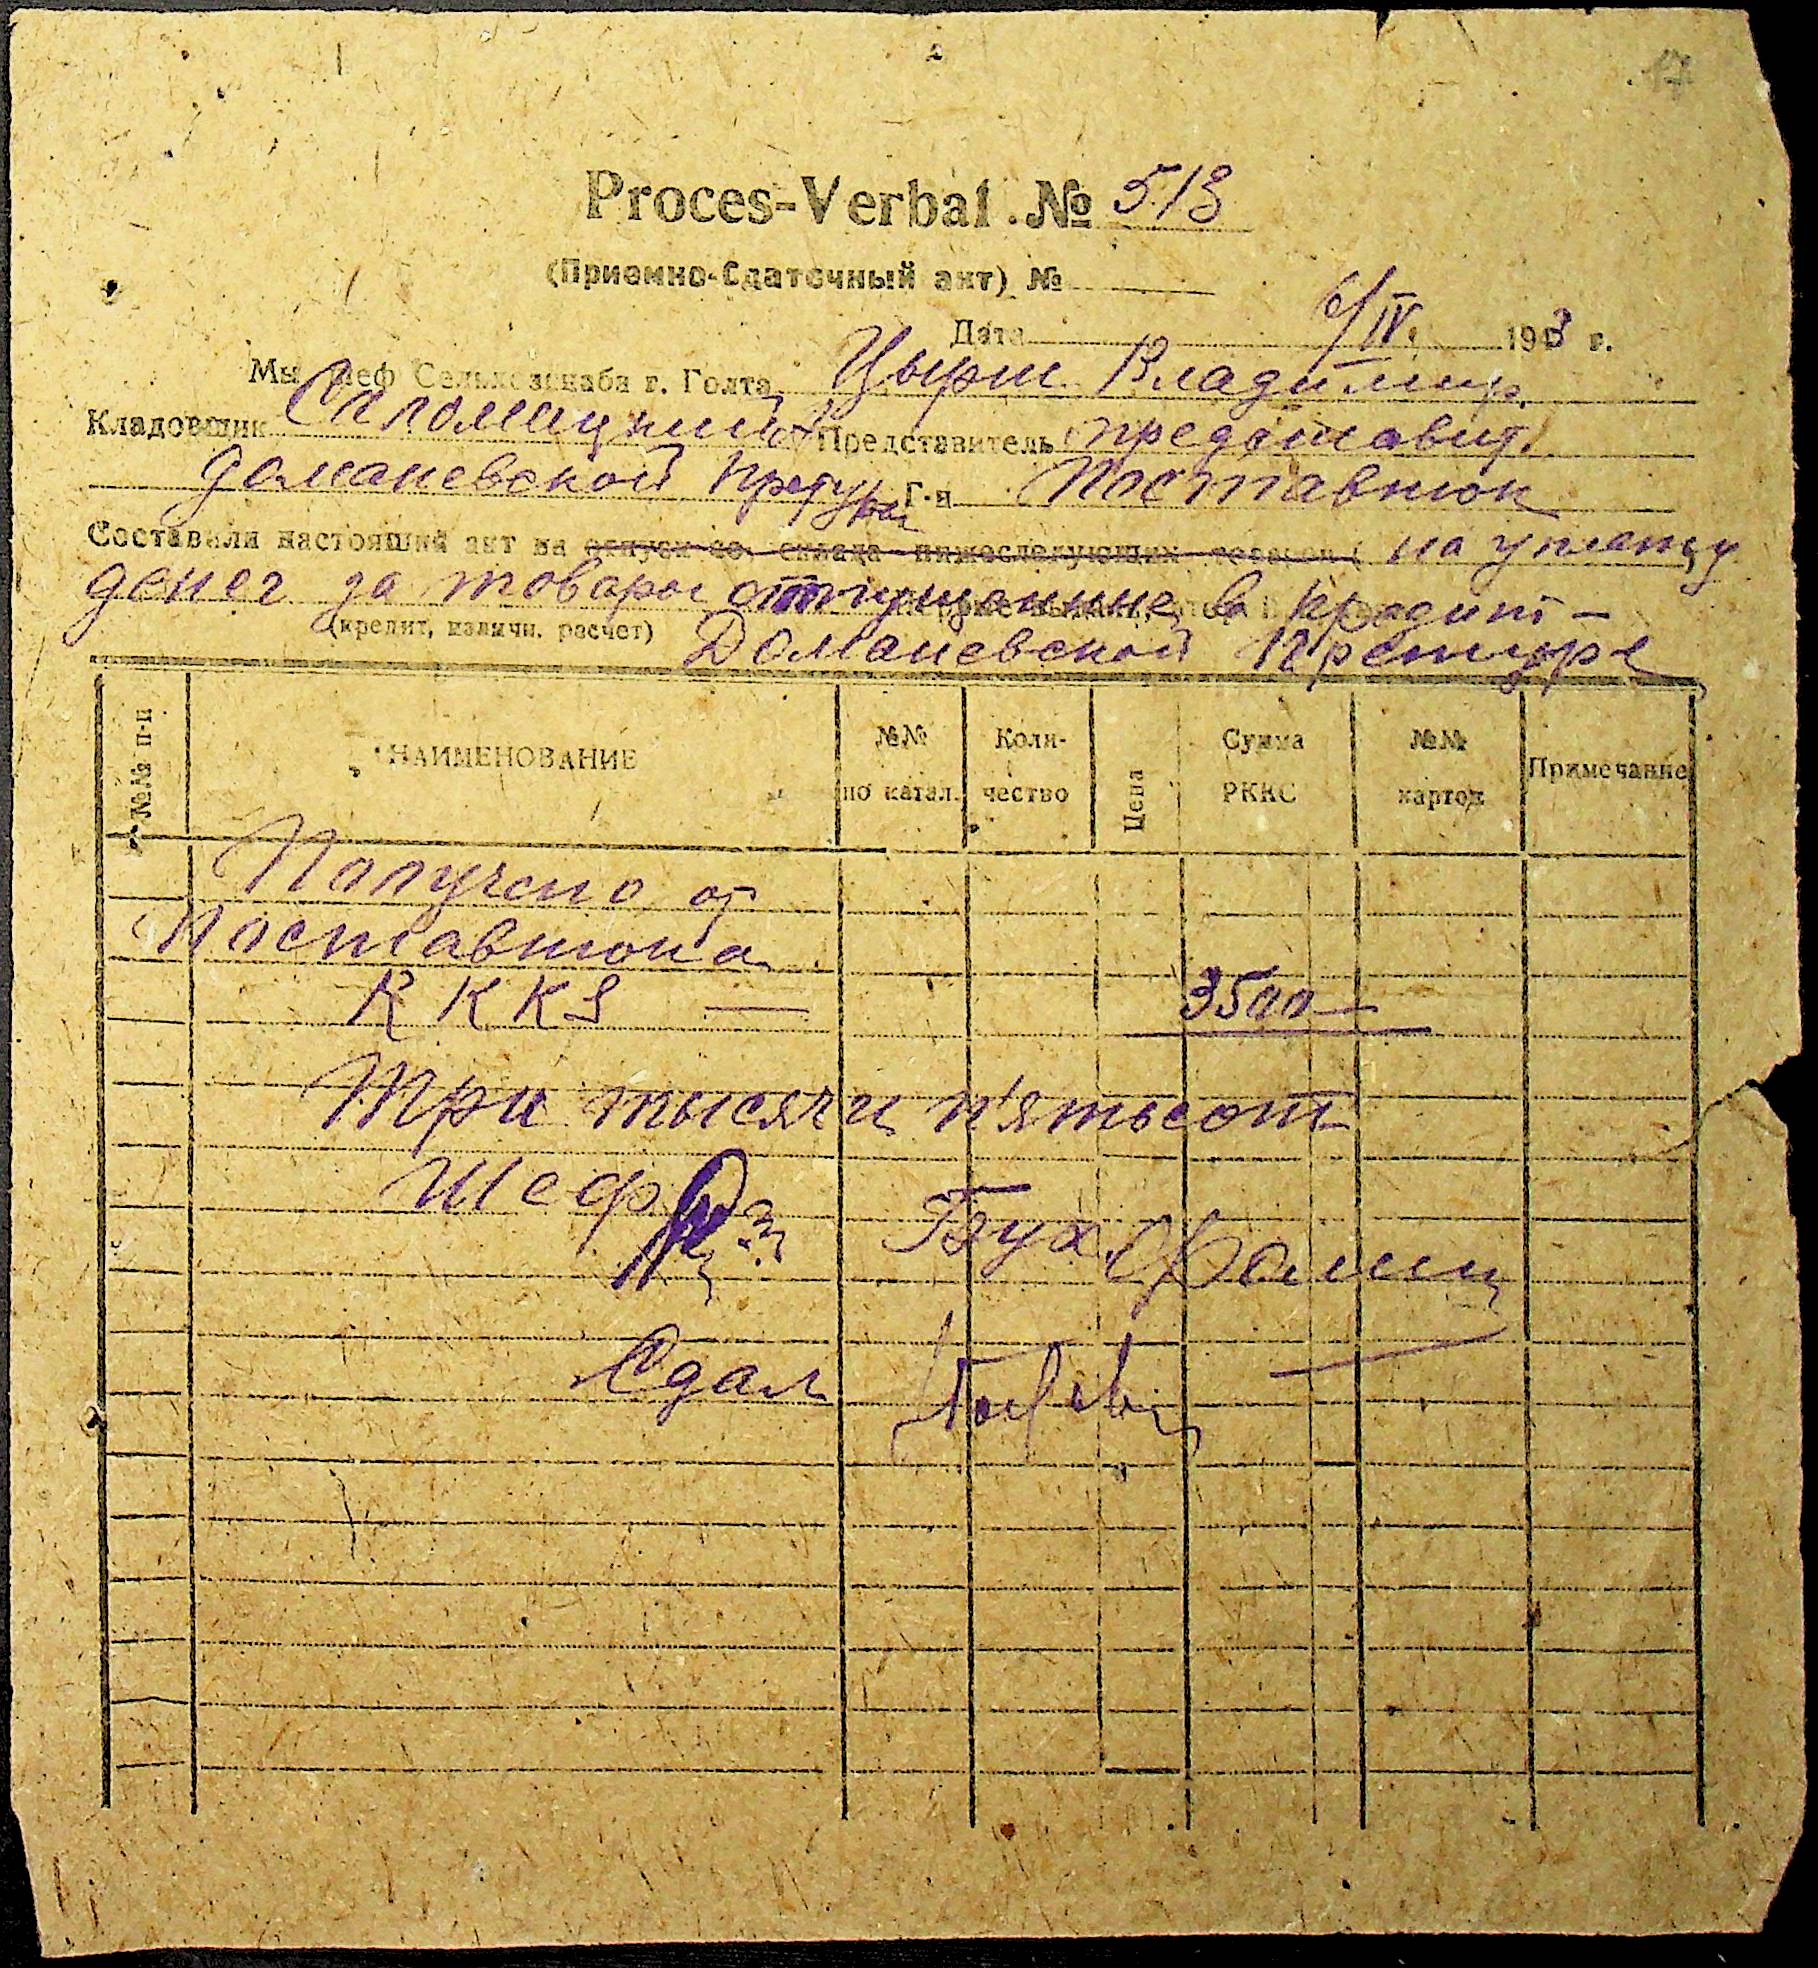 17
Proces-Verbal № 513
(Приемно-Сдаточный акт) №
Дата 6/IV. 1943 г.
Мы шеф Сельхозснаба г. Голта Цырш Владимир.
Кладовщик Представитель представит.
Доманевской Претуры Г-н Поставнюк
Составили настоящий акт на отпуск со склада нижеследующих товаров на уплату
денег за товары отпущенные в кредит –
(кредит, наличн. расчет) Доманевской Претуре
№№ п-п НАИМЕНОВАНИЕ №№ по катал. Коли-чество Цена Сумма РККС №№ карточ Примечание
Получено от
Поставнюка
RKKS — 3500 —
Три тысячи п'ятьсот
Шеф Бух.
Сдал